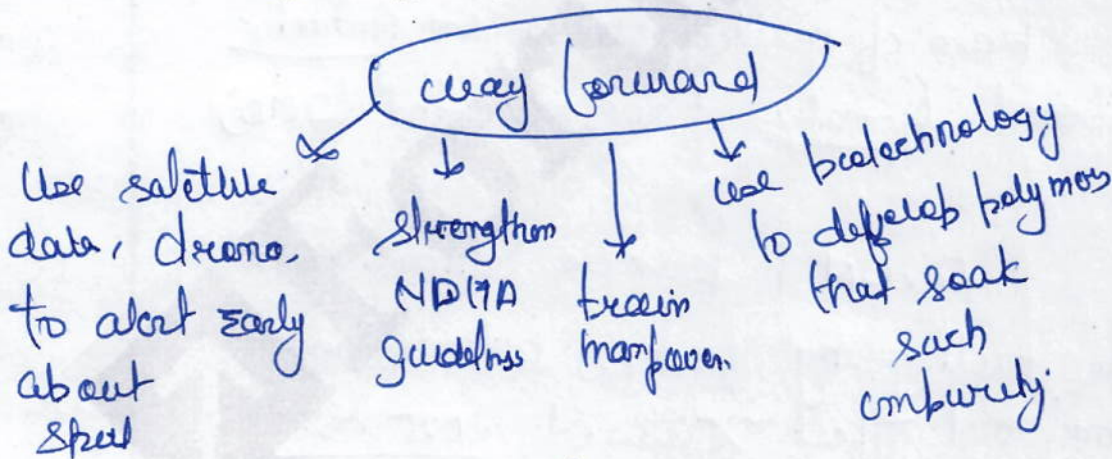 way forward
Use satellite
data, drone,
to alert Early
about
spill
strengthen
NDMA
guidelines
train
manpower
use biotechnology
to develop polymers
that soak
such
impurity.